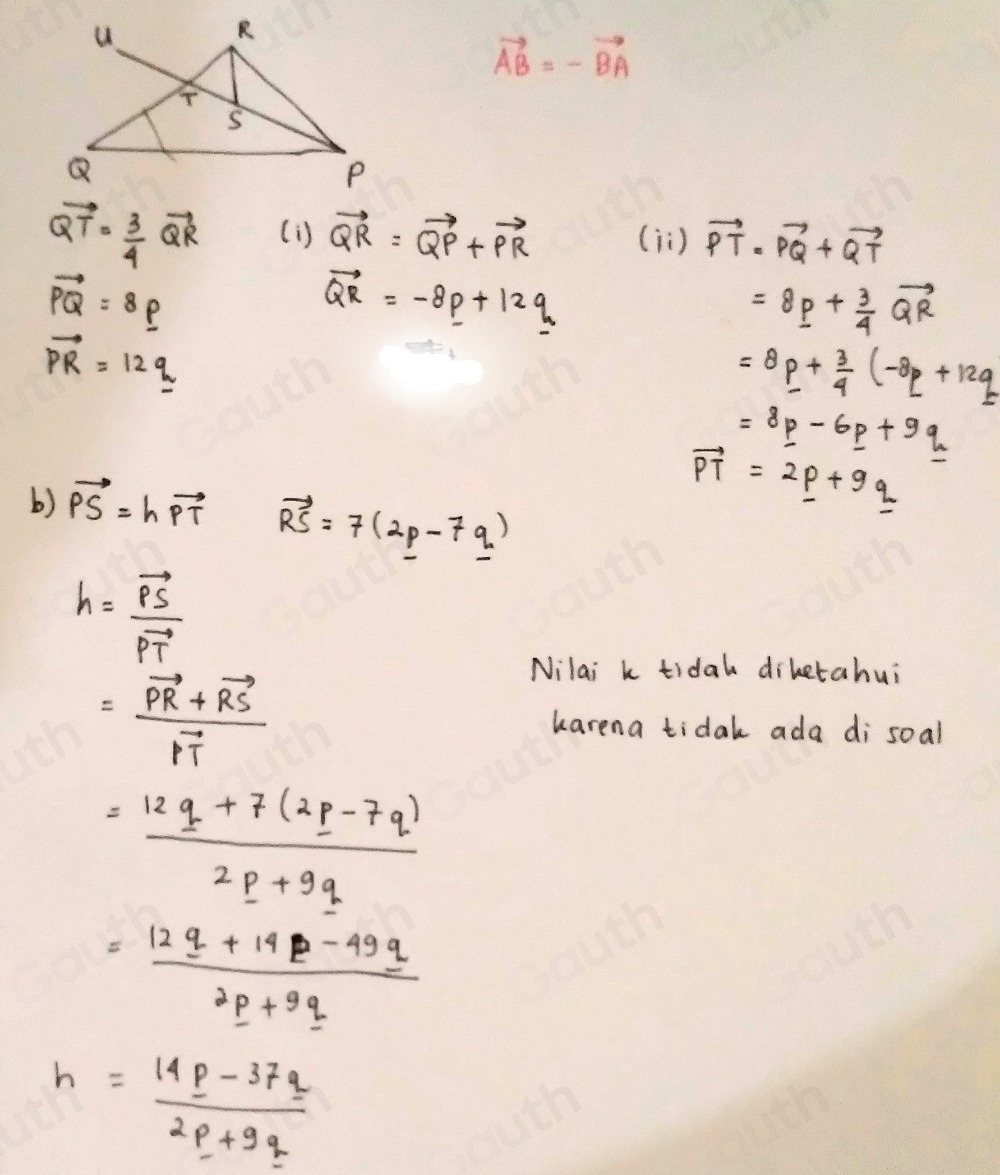 U
R
T
S
Q
P
AB = - BA
QT = 3/4 QR
PQ = 8p
PR = 12q
(i) QR = QP + PR
QR = -8p + 12q
(ii) PT = PQ + QT
= 8p + 3/4 QR
= 8p + 3/4 (-8p + 12q
= 8p - 6p + 9q
PT = 2p + 9q
b) PS = h PT
RS = 7(2p - 7q)
h = PS
PT
= PR + RS
PT
= 12q + 7(2p - 7q)
2p + 9q
= 12q + 14p - 49q
2p + 9q
h = 14p - 37q
2p + 9q
Nilai k tidak diketahui
karena tidak ada di soal
Gauth